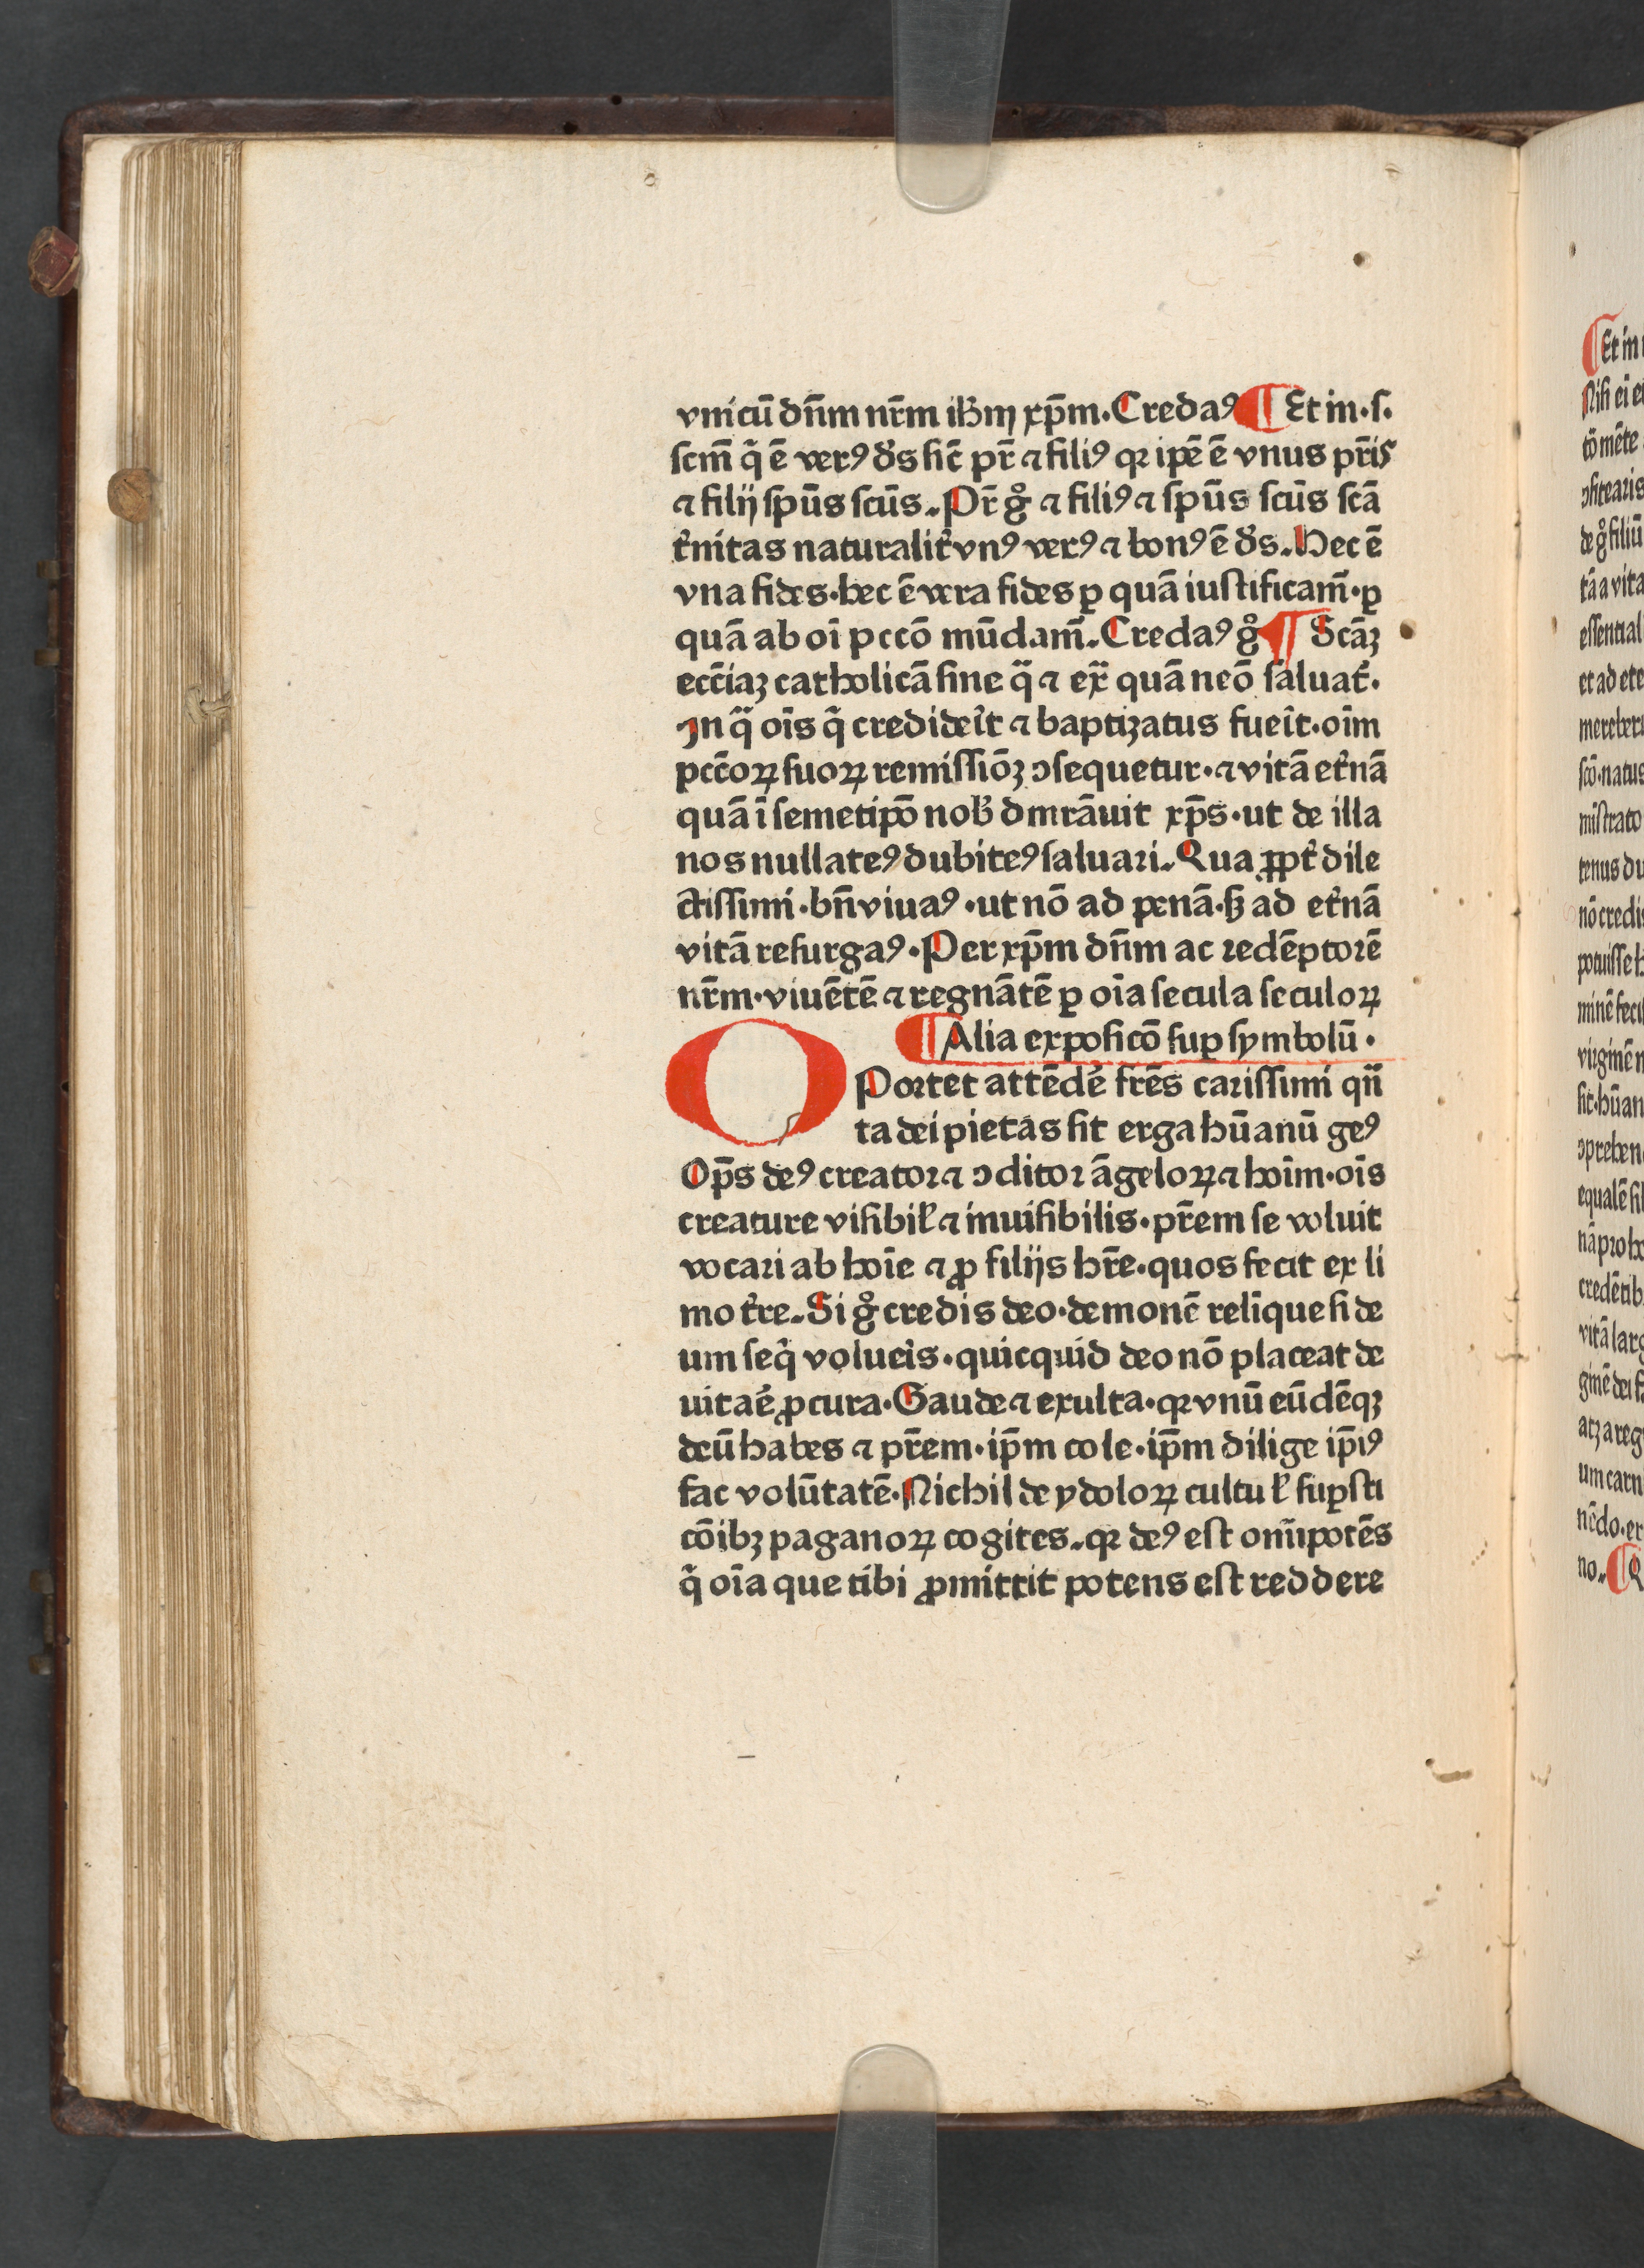 vnicū dn̄m nr̄m ihm xp̄m·Credaꝰ ¶ Et in·ſ·
ſcm̄ q̄ ē verꝰ ds̄ ſic̄ pr̄ ⁊ filiꝰ qꝛ ip̄e ē vnus pr̄is
⁊ filij ſpūs ſcūs. Pr̄ gͦ ⁊ filiꝰ ⁊ ſpūs ſcūs ſcā
t͛nitas naturalit͛ vnꝰ verꝰ ⁊ bonꝰ ē ds̄. Hec ē
vna fides·hec ē vera fides ꝑ quā iuſtificam̄·ꝑ
quā ab oī pccō mūdam̄. Credaꝰ gͦ ¶ Scāꝫ
ecc̄iaꝫ catholicā ſine qͣ ⁊ exͣ quā neō ſaluat͛·
Jn qͣ oīs q̄ credideīt ⁊ baptizatus fueīt·oīm
pcc̄oꝝ ſuoꝝ remiſſiōꝫ ↄſequetur·⁊ vitā et͛nā
quā ī ſemetip̄o nob̄ dmrāuit xp̄s·ut de illa
nos nullateꝰ dubiteꝰ ſaluari. Qua ꝓpt͛ dile
ctiſſimi·bn̄ viuaꝰ·ut nō ad penā·ſꝫ ad et͛nā
vitā reſurgaꝰ·Per xp̄m dn̄m ac redēptorē
nr̄m·viuētē ⁊ regnātē ꝑ oīa ſecula ſeculoꝝ
¶ Alia expoſicō ſuꝑ ſymbolū·
OPortet attēde͛ fr̄es cariſſimi qn̄
ta dei pietas ſit erga hūanū geꝰ
Op̄s deꝰ creator ⁊ ↄditor āgeloꝝ ⁊ hoīm·oīs
creature viſibil̄ ⁊ inuiſibilis·pr̄em ſe voluit
vocari ab hoīe ⁊ ꝓ filijs hr̄e·quos fecit ex li
mo t͛re. Si gͦ credis deo·demonē relīque ſi de
um ſeq̄ volueīs·quicquid deo nō placeat de
uitae͛ ꝓcura·Gaude ⁊ exulta·qꝛ vnū eūdēqꝫ
deū habes ⁊ pr̄em·ip̄m cole·ip̄m dilige ip̄iꝰ
fac volūtatē·Nichil de ydoloꝝ cultu l̄ ſuꝑſti
cōibꝫ paganoꝝ cogites. qꝛ deꝰ eſt om̄ipotēs
q̄ oīa que tibi ꝓmittit potens eſt reddere